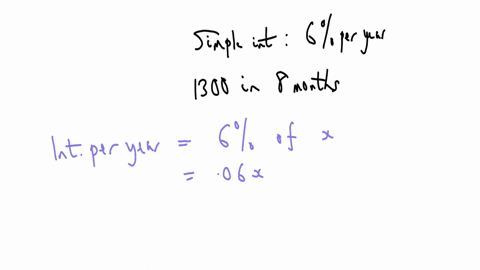 Simple int : 6% per year
1300 in 8 months
Int. per year = 6% of x
= .06x